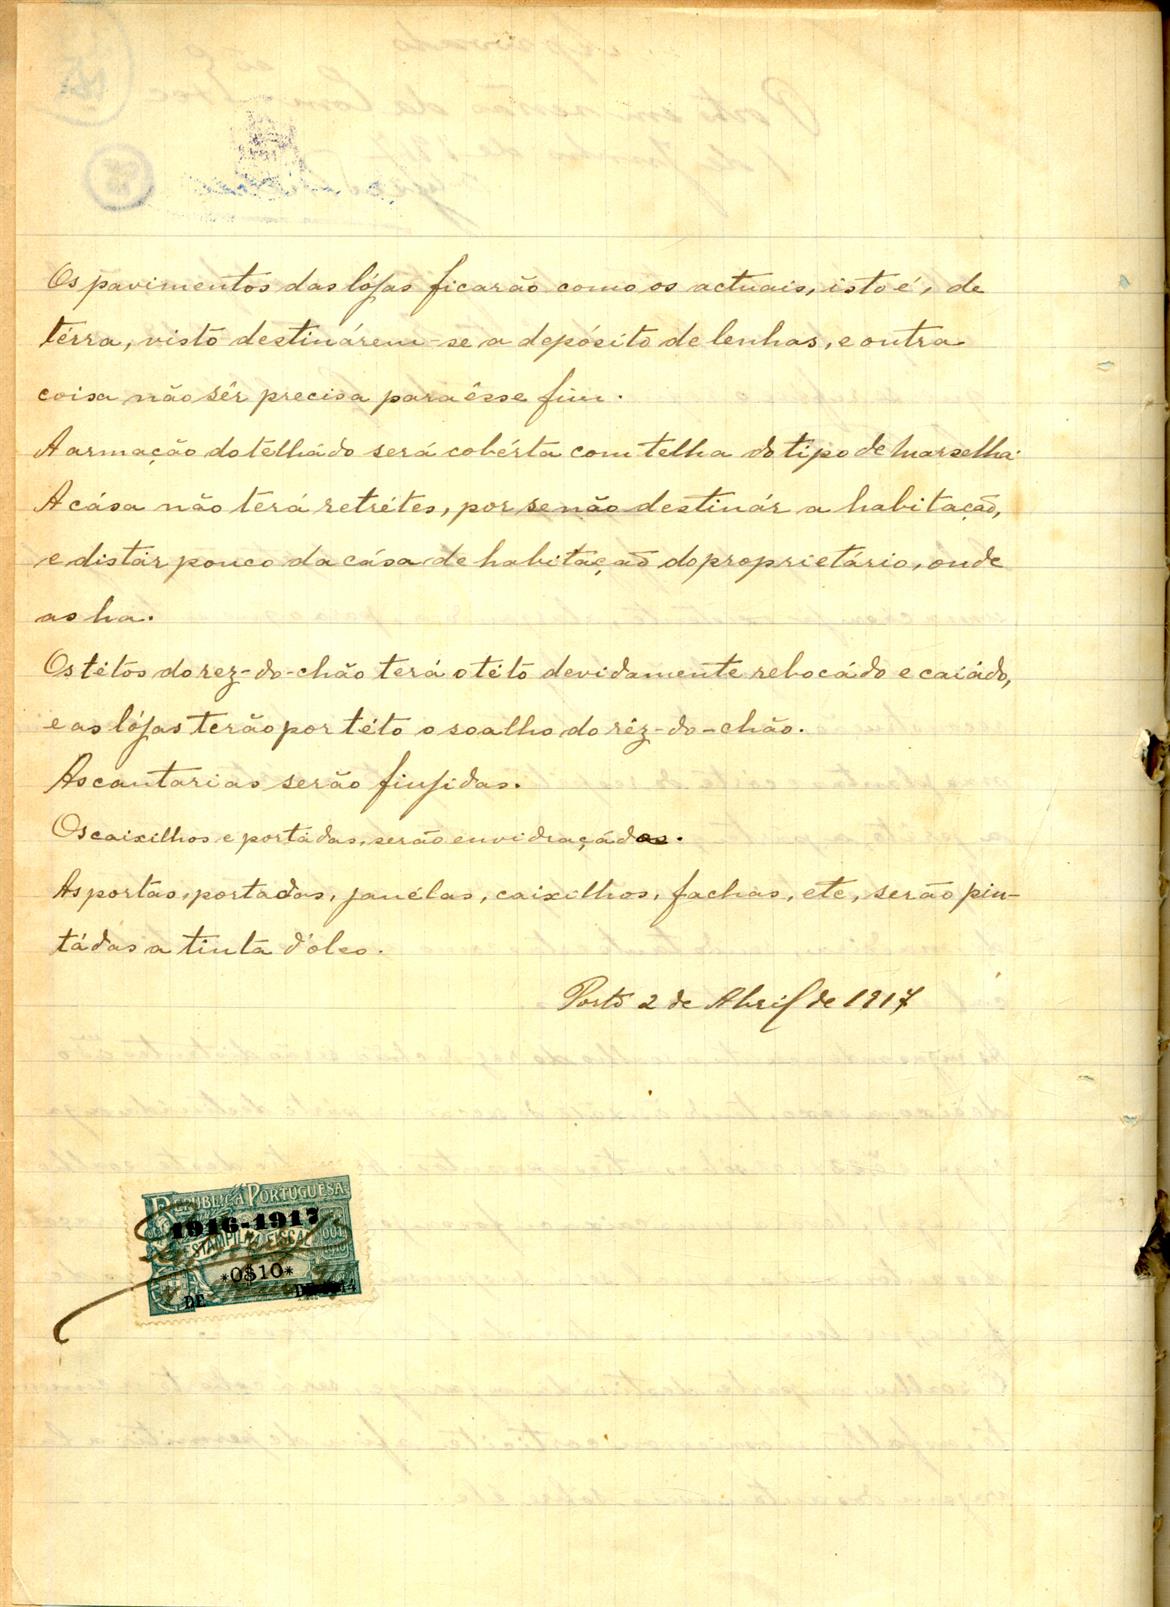 Os pavimentos das lójas ficarão como os actuais, isto é, de
térra, visto destinárem-se a depósito de lenhas, e outra
coisa não sêr precisa para êsse fim.
A armação do telhádo será cobérta com telha do tipo de Marselha.
A cása não terá retrétes, por se não destinár a habitação,
e distár pouco da cása de habitação do proprietário, onde
as ha.
Os tétos do rez-do-chão terá o této devidamente rebocádo e caiádo,
e as lójas terão por této o soalho do réz-do-chão.
As cantarias serão finjidas.
Os caixilhos e portádas, serão envidraçádos.
As portas, portadas, janélas, caixilhos, fachas, etc, serão pin-
tádas a tinta d'oleo.
Porto 2 de Abril de 1917
REPUBLICA PORTUGUESA
1916-1917
ESTAMPILHA FISCAL
*0$10*
DE